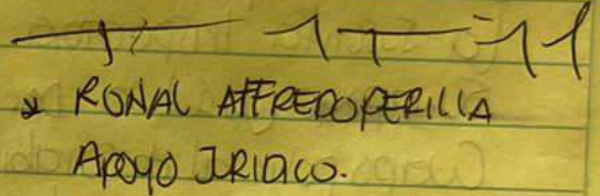 * RONAL ALFREDO PERILLA
APOYO JURIDICO.